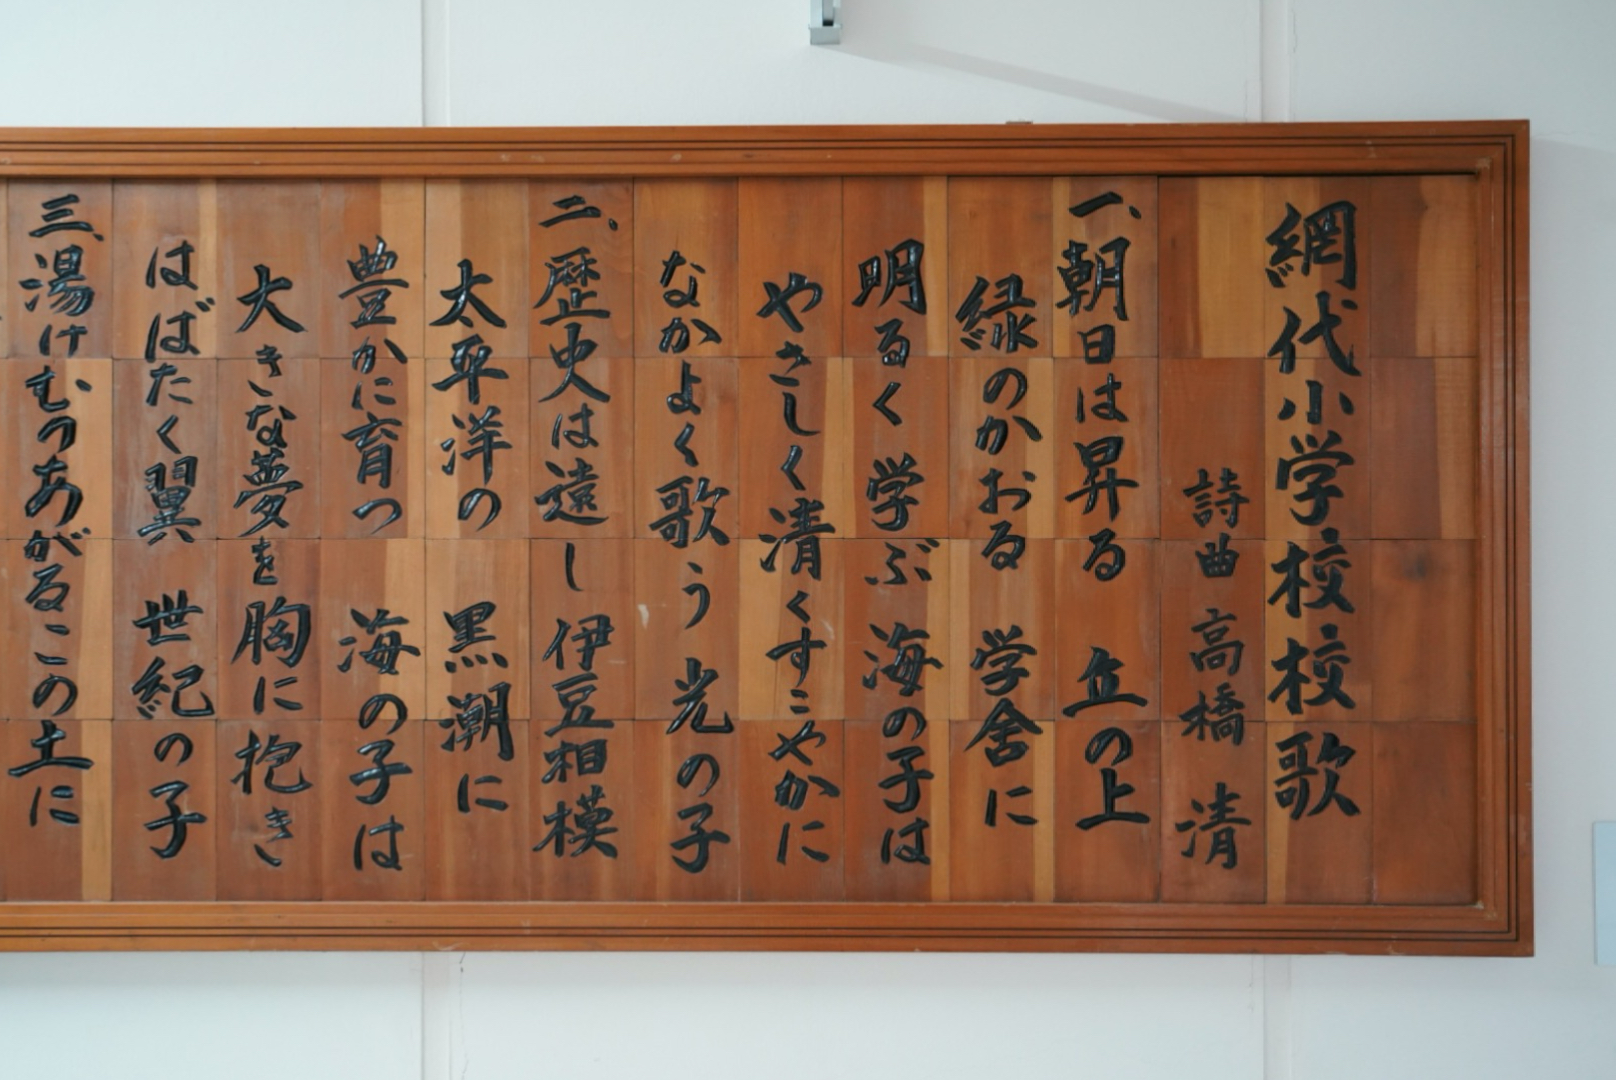 網代小学校校歌
詩曲 高橋 清
一、朝日は昇る 丘の上
緑のかおる 学舎に
明るく学ぶ 海の子は
やさしく清くすこやかに
なかよく歌う 光の子
二、歴史は遠し 伊豆相模
太平洋の 黒潮に
豊かに育つ 海の子は
大きな夢を胸に抱き
はばたく翼 世紀の子
三、湯けむりあがるこの土に